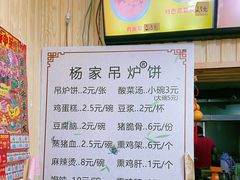 特色
杨家吊炉饼®
吊炉饼..2元/张 酸菜汤..小碗3元
(大碗5元)
鸡蛋糕..2.5元/碗 豆浆..2元/杯
豆腐脑..2元/碗 猪脆骨..6元/份
蒸猪血..2.5元/碗 熏鸡架..6元/个
麻辣烫..8元/碗 熏鸡肝..1元/个